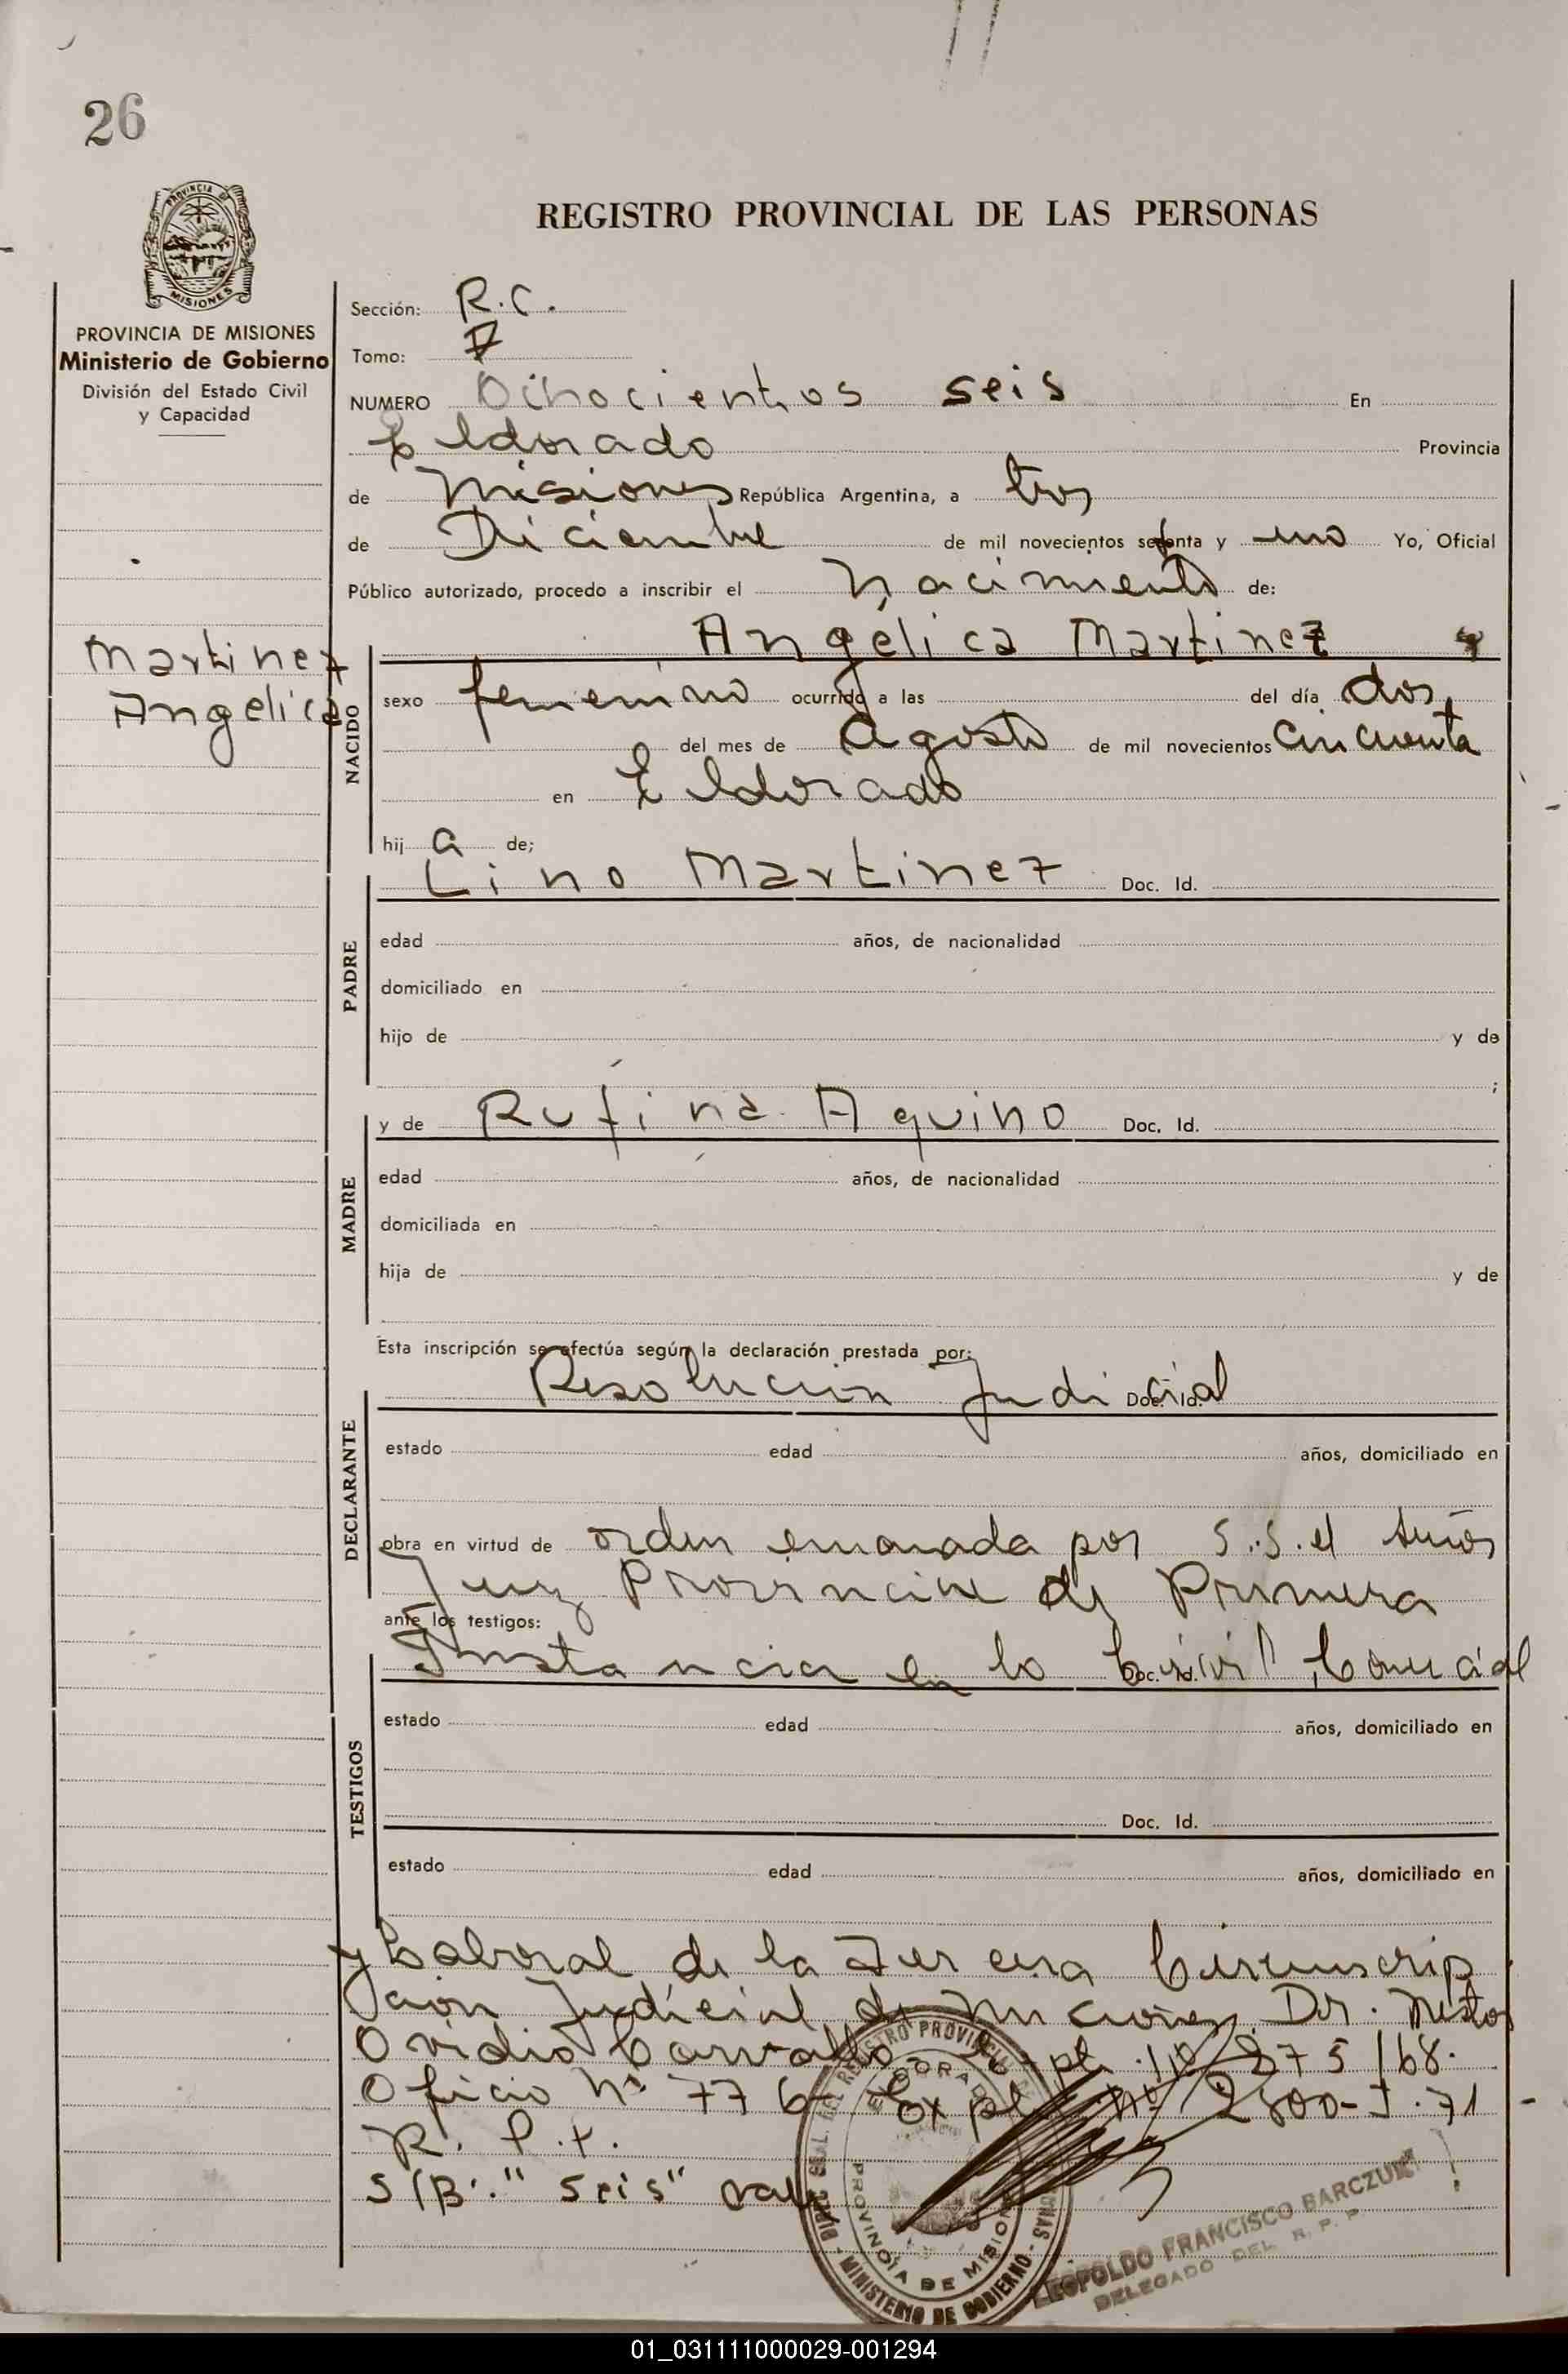 26
PROVINCIA DE
MISIONES
REGISTRO PROVINCIAL DE LAS PERSONAS
PROVINCIA DE MISIONES
Ministerio de Gobierno
División del Estado Civil
y Capacidad
Martinez
Angelica
Sección: R.C.
Tomo: 7
NUMERO Ochocientos seis En
Eldorado Provincia
de Misiones República Argentina, a tres
de Diciembre de mil novecientos setenta y uno Yo, Oficial
Público autorizado, procedo a inscribir el nacimiento de:
NACIDO
Angélica Martinez
sexo femenino ocurrido a las del día dos
del mes de Agosto de mil novecientos cincuenta
en Eldorado
hij a de;
PADRE
Lino Martinez Doc. Id.
edad años, de nacionalidad
domiciliado en
hijo de y de
;
MADRE
y de Rufina Aquino Doc. Id.
edad años, de nacionalidad
domiciliada en
hija de y de
Esta inscripción se efectúa según la declaración prestada por:
DECLARANTE
Resolucion Judicial Doc. Id.
estado edad años, domiciliado en
obra en virtud de orden emanada por S.S. el Señor
Juez Provincial de Primera
ante los testigos:
TESTIGOS
Instancia en lo Civil, Comercial Doc. Id.
estado edad años, domiciliado en
Doc. Id.
estado edad años, domiciliado en
y Laboral de la Tercera Circunscrip
cion Judicial de Misiones, Dr. Nestor
Ovidio 275/68.
Oficio Nº 776 Expte Nº 2800-J.71
R. P. P.
S/B: "seis" vale
DIREC. GRAL. DEL REGISTRO PROVINCIAL DE LAS PERSONAS
ELDORADO
PROVINCIA DE MISIONES
MINISTERIO DE GOBIERNO
LEOPOLDO FRANCISCO BARCZUK
DELEGADO DEL R. P. P.
01_031111000029-001294